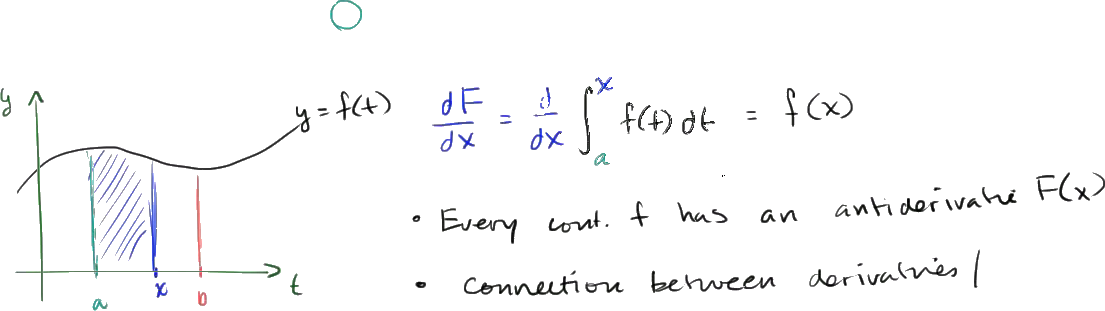 y
y = f(t)
dF/dx = d/dx ∫ₐˣ f(t) dt = f(x)
• Every cont. f has an antiderivative F(x)
• Connection between derivatives /
t
a x b